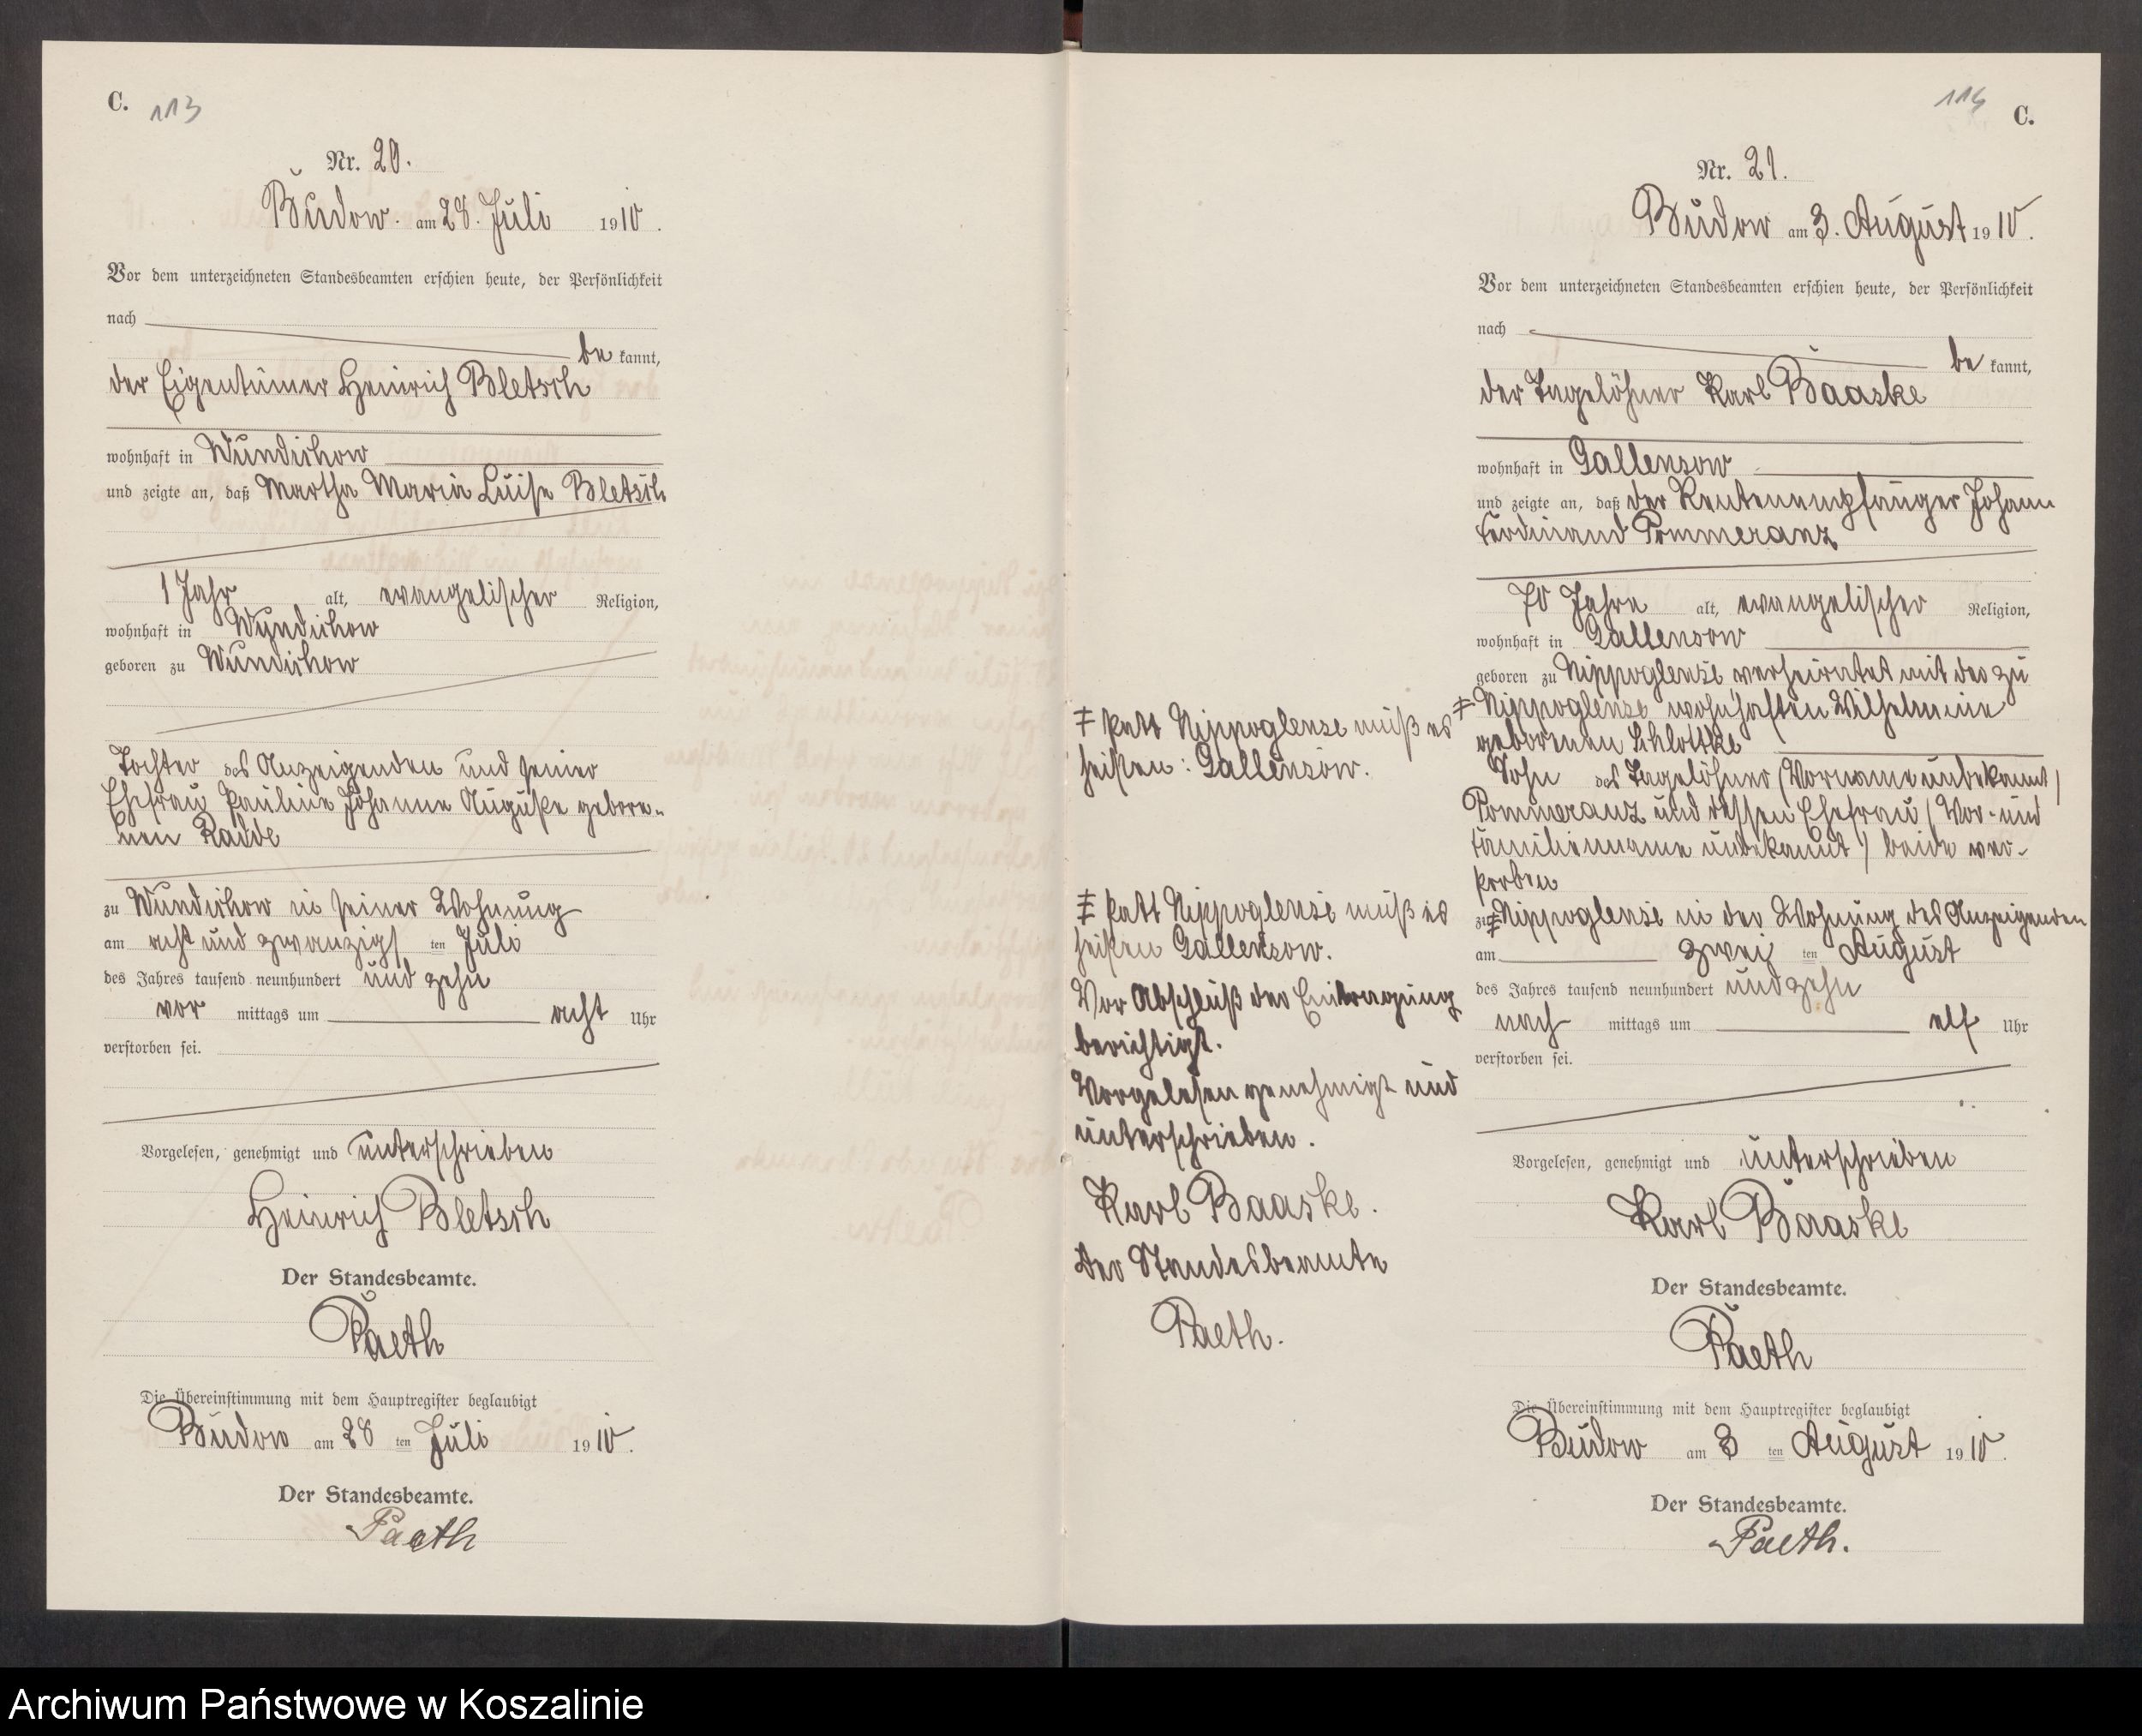 C. 113
Nr. 20.
Budow. am 28. Juli 1910.
Vor dem unterzeichneten Standesbeamten erschien heute, der Persönlichkeit
nach
be kannt,
der Eigentümer Heinrich Bletsch
wohnhaft in Wundichow
und zeigte an, daß Martha Maria Luise Bletsch
1 Jahr alt, evangelischer Religion,
wohnhaft in Wundichow
geboren zu Wundichow
Tochter des Anzeigenden und seiner
Ehefrau Pauline Johanne Auguste gebore-
nen Radde
zu Wundichow in seiner Wohnung
am acht und zwanzigsten Juli
des Jahres tausend neunhundert und zehn
vor mittags um acht Uhr
verstorben sei.
Vorgelesen, genehmigt und unterschrieben
Heinrich Bletsch
Der Standesbeamte.
Paeth
Die Übereinstimmung mit dem Hauptregister beglaubigt
Budow am 28 ten Juli 1910.
Der Standesbeamte.
Paeth
114 C.
Nr. 21.
Budow am 3. August 1910.
Vor dem unterzeichneten Standesbeamten erschien heute, der Persönlichkeit
nach
be kannt,
der Tagelöhner Karl Baaske
wohnhaft in Gallensow
und zeigte an, daß der Rentenempfänger Johann
Ferdinand Pommeranz
70 Jahre alt, evangelischer Religion,
wohnhaft in Gallensow
geboren zu Nippoglense verheiratet mit der zu
‡ Nippoglense wohnhaften Wilhelmine
geborenen Schlottke
Sohn des Tagelöhner (Vorname unbekannt)
Pommeranz und dessen Ehefrau (Vor- und
Familienname unbekannt) beide ver-
storben
zu ‡ Nippoglense in der Wohnung des Anzeigenden
am zwei ten August
des Jahres tausend neunhundert und zehn
nach mittags um elf Uhr
verstorben sei.
Vorgelesen, genehmigt und unterschrieben
Karl Baaske
Der Standesbeamte.
Paeth
Die Übereinstimmung mit dem Hauptregister beglaubigt
Budow am 3 ten August 1910.
Der Standesbeamte.
Paeth.
‡ statt Nippoglense muß es
heißen: Gallensow.
‡ statt Nippoglense muß es
heißen Gallensow.
Vor Abschluß der Eintragung
berichtigt.
Vorgelesen genehmigt und
unterschrieben.
Karl Baaske.
Der Standesbeamte
Paeth.
Archiwum Państwowe w Koszalinie